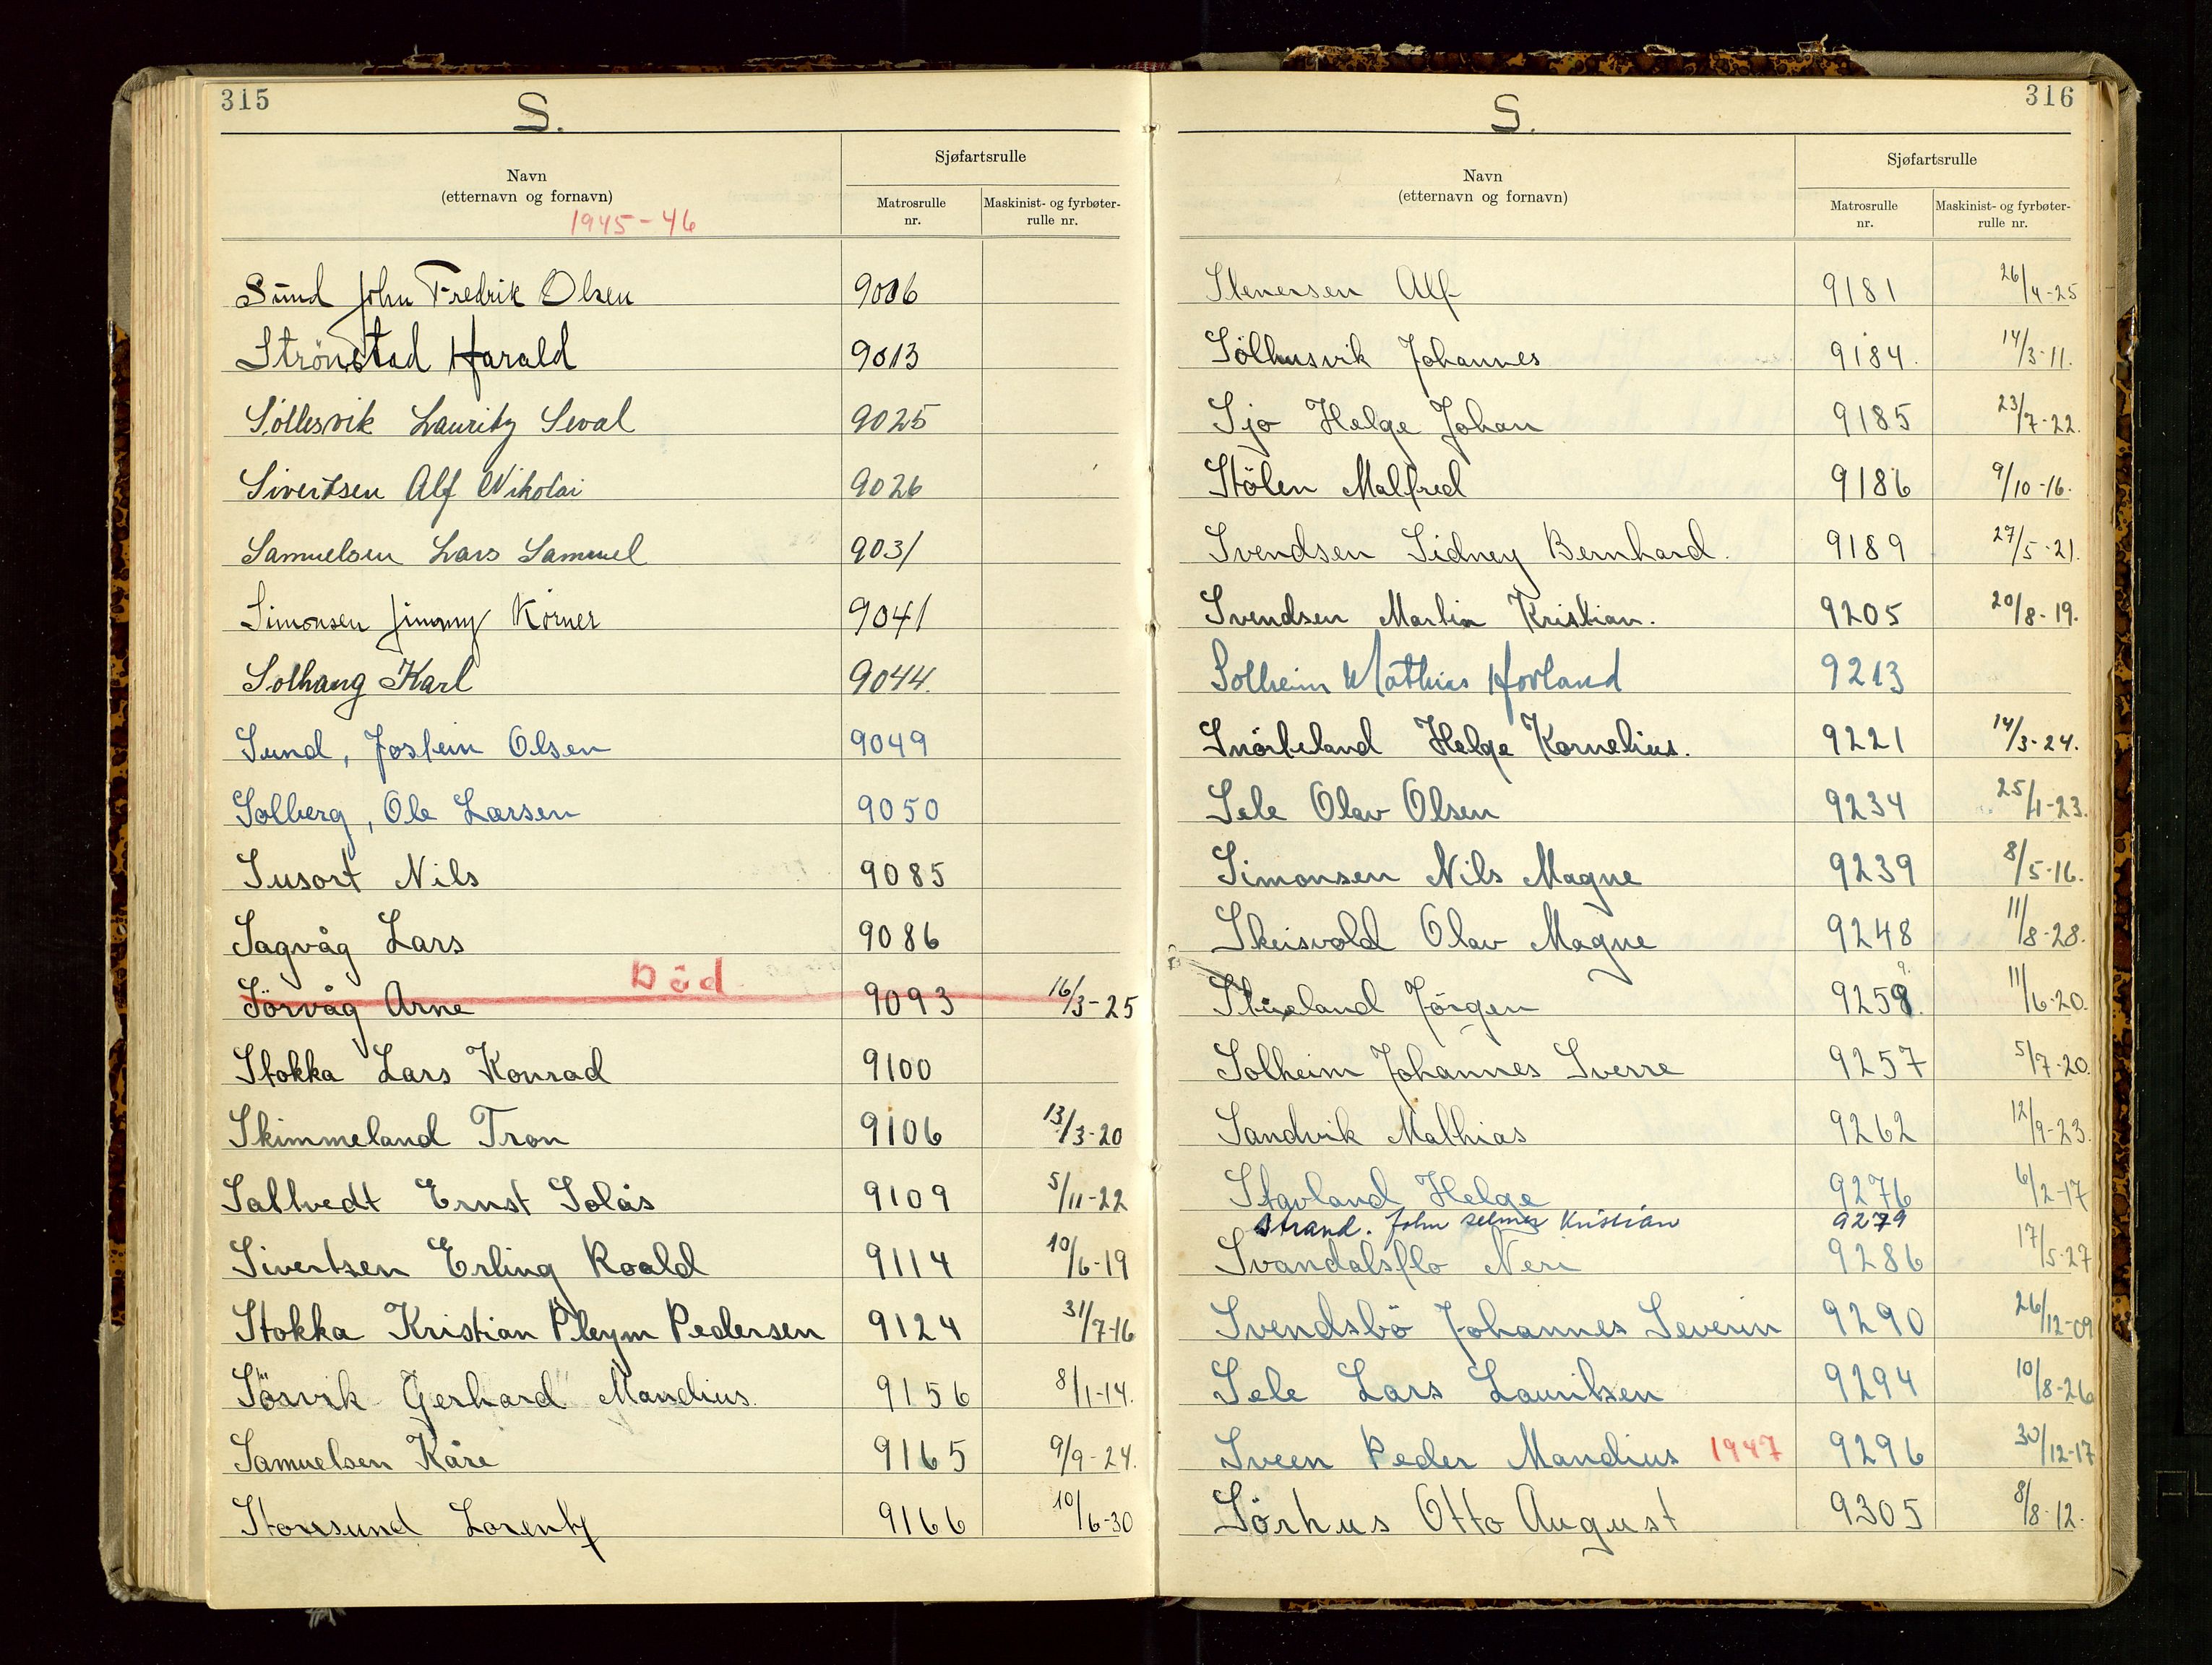 315
S.
Navn
(etternavn og fornavn)
1945-46
Sjøfartsrulle
Matrosrulle
nr.
Maskinist- og fyrbøter-
rulle nr.
Sund John Fredrik Olsen 9006
Strönstad Harald 9013
Söllesvik Lauritz Seval 9025
Sivertsen Alf Nikolai 9026
Samuelsen Lars Samuel 9031
Simonsen Jimmy Körner 9041
Solhaug Karl 9044.
Sund, Jostein Olsen 9049
Solberg, Ole Larsen 9050
Susort Nils 9085
Sagvåg Lars 9086
Död
Sörvåg Arne 9093 16/3-25
Stokka Lars Konrad 9100
Skimmeland Tron 9106 13/3-20
Saltvedt Ernst Solås 9109 5/11-22
Sivertsen Erling Roald 9114 10/6-19
Stokka Kristian Pleym Pedersen 9124 31/7-16
Gerhard Mandius. 9156 8/1-14.
Samuelsen Kåre 9165 9/9-24.
Storesund Lorentz 9166 10/6-30
316
S.
Navn
(etternavn og fornavn)
Sjøfartsrulle
Matrosrulle
nr.
Maskinist- og fyrbøter-
rulle nr.
Stenersen Alf 9181 26/4-25
Sölhusvik Johannes 9184. 14/3-11.
Sjo Helge Johan 9185 23/7-22.
Stölen Malfred 9186 9/10-16.
Svendsen Sidney Bernhard. 9189 27/5-21.
Svendsen Martin Kristian. 9205 20/8-19.
Solheim Mathias Hovland 9213
Snörteland Helge Kornelius. 9221 14/3-24.
Sele Olav Olsen 9234 25/1-23.
Simonsen Nils Magne 9239 8/5-16.
Skeisvold Olav Magne 9248 11/8-28.
Jörgen 11/6-20.
Solheim Johannes Sverre 9257 5/7-20.
Sandvik Mathias 9262 12/9-23.
Stavland Helge 9276 6/2-17
Strand. John Selmer Kristian 9279
Svandalsflo Neri 9286 17/5-27
Svendsbö Johannes Severin 9290 26/12-09
Sele Lars Lauritsen 9294 10/8-26
Sveen Peder Mandius 1947 9296 30/12-17
Sörhus Otto August 9305 8/8-12.